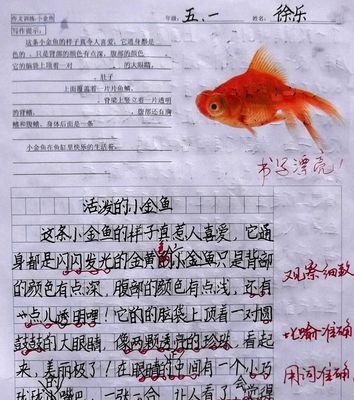 作文训练:小金鱼
年级: 五.一 姓名: 徐乐
写作提示:
这条小金鱼的样子真令人喜爱,它通身都是
色的,只是背部的颜色有点深,腹部的颜色
它的脑袋上顶着一对 的大眼睛,
,肚子
上面覆盖着一片片鱼鳞,
,脊梁上竖立着一片透明
的背鳍, ,腹部还有胸
鳍和腹鳍,身体后面是一条
小金鱼在鱼缸里快乐的生活着。
书写漂亮!
活泼的小金鱼
这条小金鱼的样子真惹人喜爱,它通
身都是闪闪发光的金黄的小金鱼只是背部
的颜色有点深,腹部的颜色有点浅,还有
一点儿透明哩!它的的脑袋上顶着一对圆
鼓鼓的大眼睛,像两颗透亮的珍珠,看起
来,美丽极了!在眼睛的中间有一个小巧
观察细致
比喻准确
用词准确